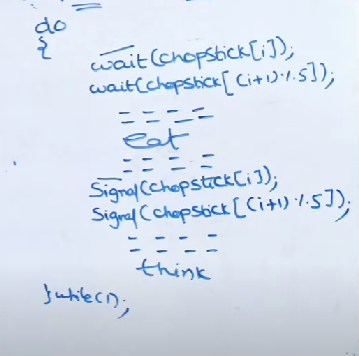 do
{
wait(chopstick[i]);
wait(chopstick[(i+1)%5]);
= = = =
eat
= = = =
Signal(chopstick[i]);
Signal(chopstick[(i+1)%5]);
= = = =
think
}while(1);